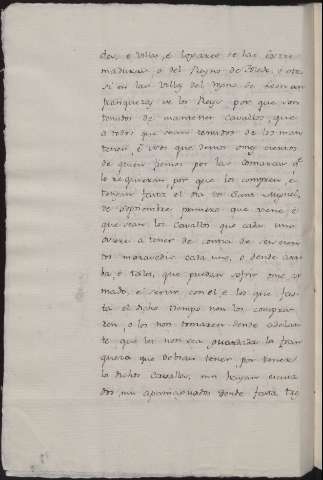 des, e Villas, e logares de las Estre
maduras, o del Reyno de Toledo, o otro
si en las Villas del Reyno de Leon an
franqueza de los Reyes, por que son
tenudos de mantener Cavallos, que
a todos que sean tenudos de los man
tener, e vos que demos omes ciertos
de quien fiemos por las Comarcas qe
lo requieran por que los compren, e
tengan fasta el dia de Sant Miguel,
de Septiembre primero que viene, e
que sean los Cavallos que cada uno
oviere a tener de contia de seiscien
tos maravedis cada uno, o dende arri
ba, e tales, que puedan sofrir ome ar
mado, e servir con el, e los que fas
ta el dicho tiempo non los compra
ren, o los non tomaren dende adelan
te que les non sea guardada la fran
queza que debian tener, por tener
los dichos Cavallos, nin hayan escusa
dos, nin apaniaguados dende fasta tre